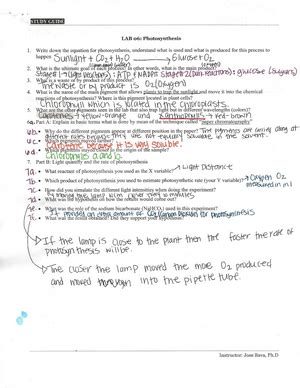 STUDY GUIDE
LAB 06: Photosynthesis
1. Write down the equation for photosynthesis, understand what is used and what is produced for this process to
happen Sunlight + CO2 + H2O → Glucose O2
2. What is the ultimate goal of each product? In other words, what is the main product?
Stage 1 → (Light reactions): ATP & NADPH Stage 2 (Dark reactions): glucose (sugars)
3. What is the waste or by product?
The waste or by product is O2 (oxygen)
4. What is the name of the main pigment that allows plants to trap the sunlight and move it into the chemical
reactions of photosynthesis? Where is this pigment located in plant cells?
Chlorophyll which is located in the chloroplasts.
5. What are the other pigments seen in the lab that also trap light but in different wavelengths (colors)?
Carotenes → yellow-orange and xanthophylls → red-brown
6. Part A: Explain in basic terms what is done by mean of the technique called "paper chromatography"
b. Why do the different pigments appear at different position in the paper? The pigments are carried along at
different rates because they are not equally soluble in the solvent.
Carotene because it is very soluble.
d. Which pigments stayed close to the origin of the sample?
Chlorophyll a and b.
7. Part B: Light quantity and the rate of photosynthesis
a. What reaction of photosynthesis you used as the X variable? → Light Distance
b. Which product of photosynthesis you used to estimate photosynthetic rate (your Y variable)? → Oxygen O2
measured in ml
c. How did you simulate the different light intensities when doing the experiment?
By moving the light
d. What was the hypothesis on how the results would come out?
e. What was the role of the sodium bicarbonate (NaHCO3) used in this experiment?
It provides an extra amount of CO2/Carbon Dioxide for photosynthesis
What was the result obtained? Did they support your hypothesis?
If the lamp is close to the plant then the faster the rate of
photosynthesis will be.
The closer the lamp moved the more O2 produced
and moved into the pipette tube.
Instructor: Jose Bava, Ph.D